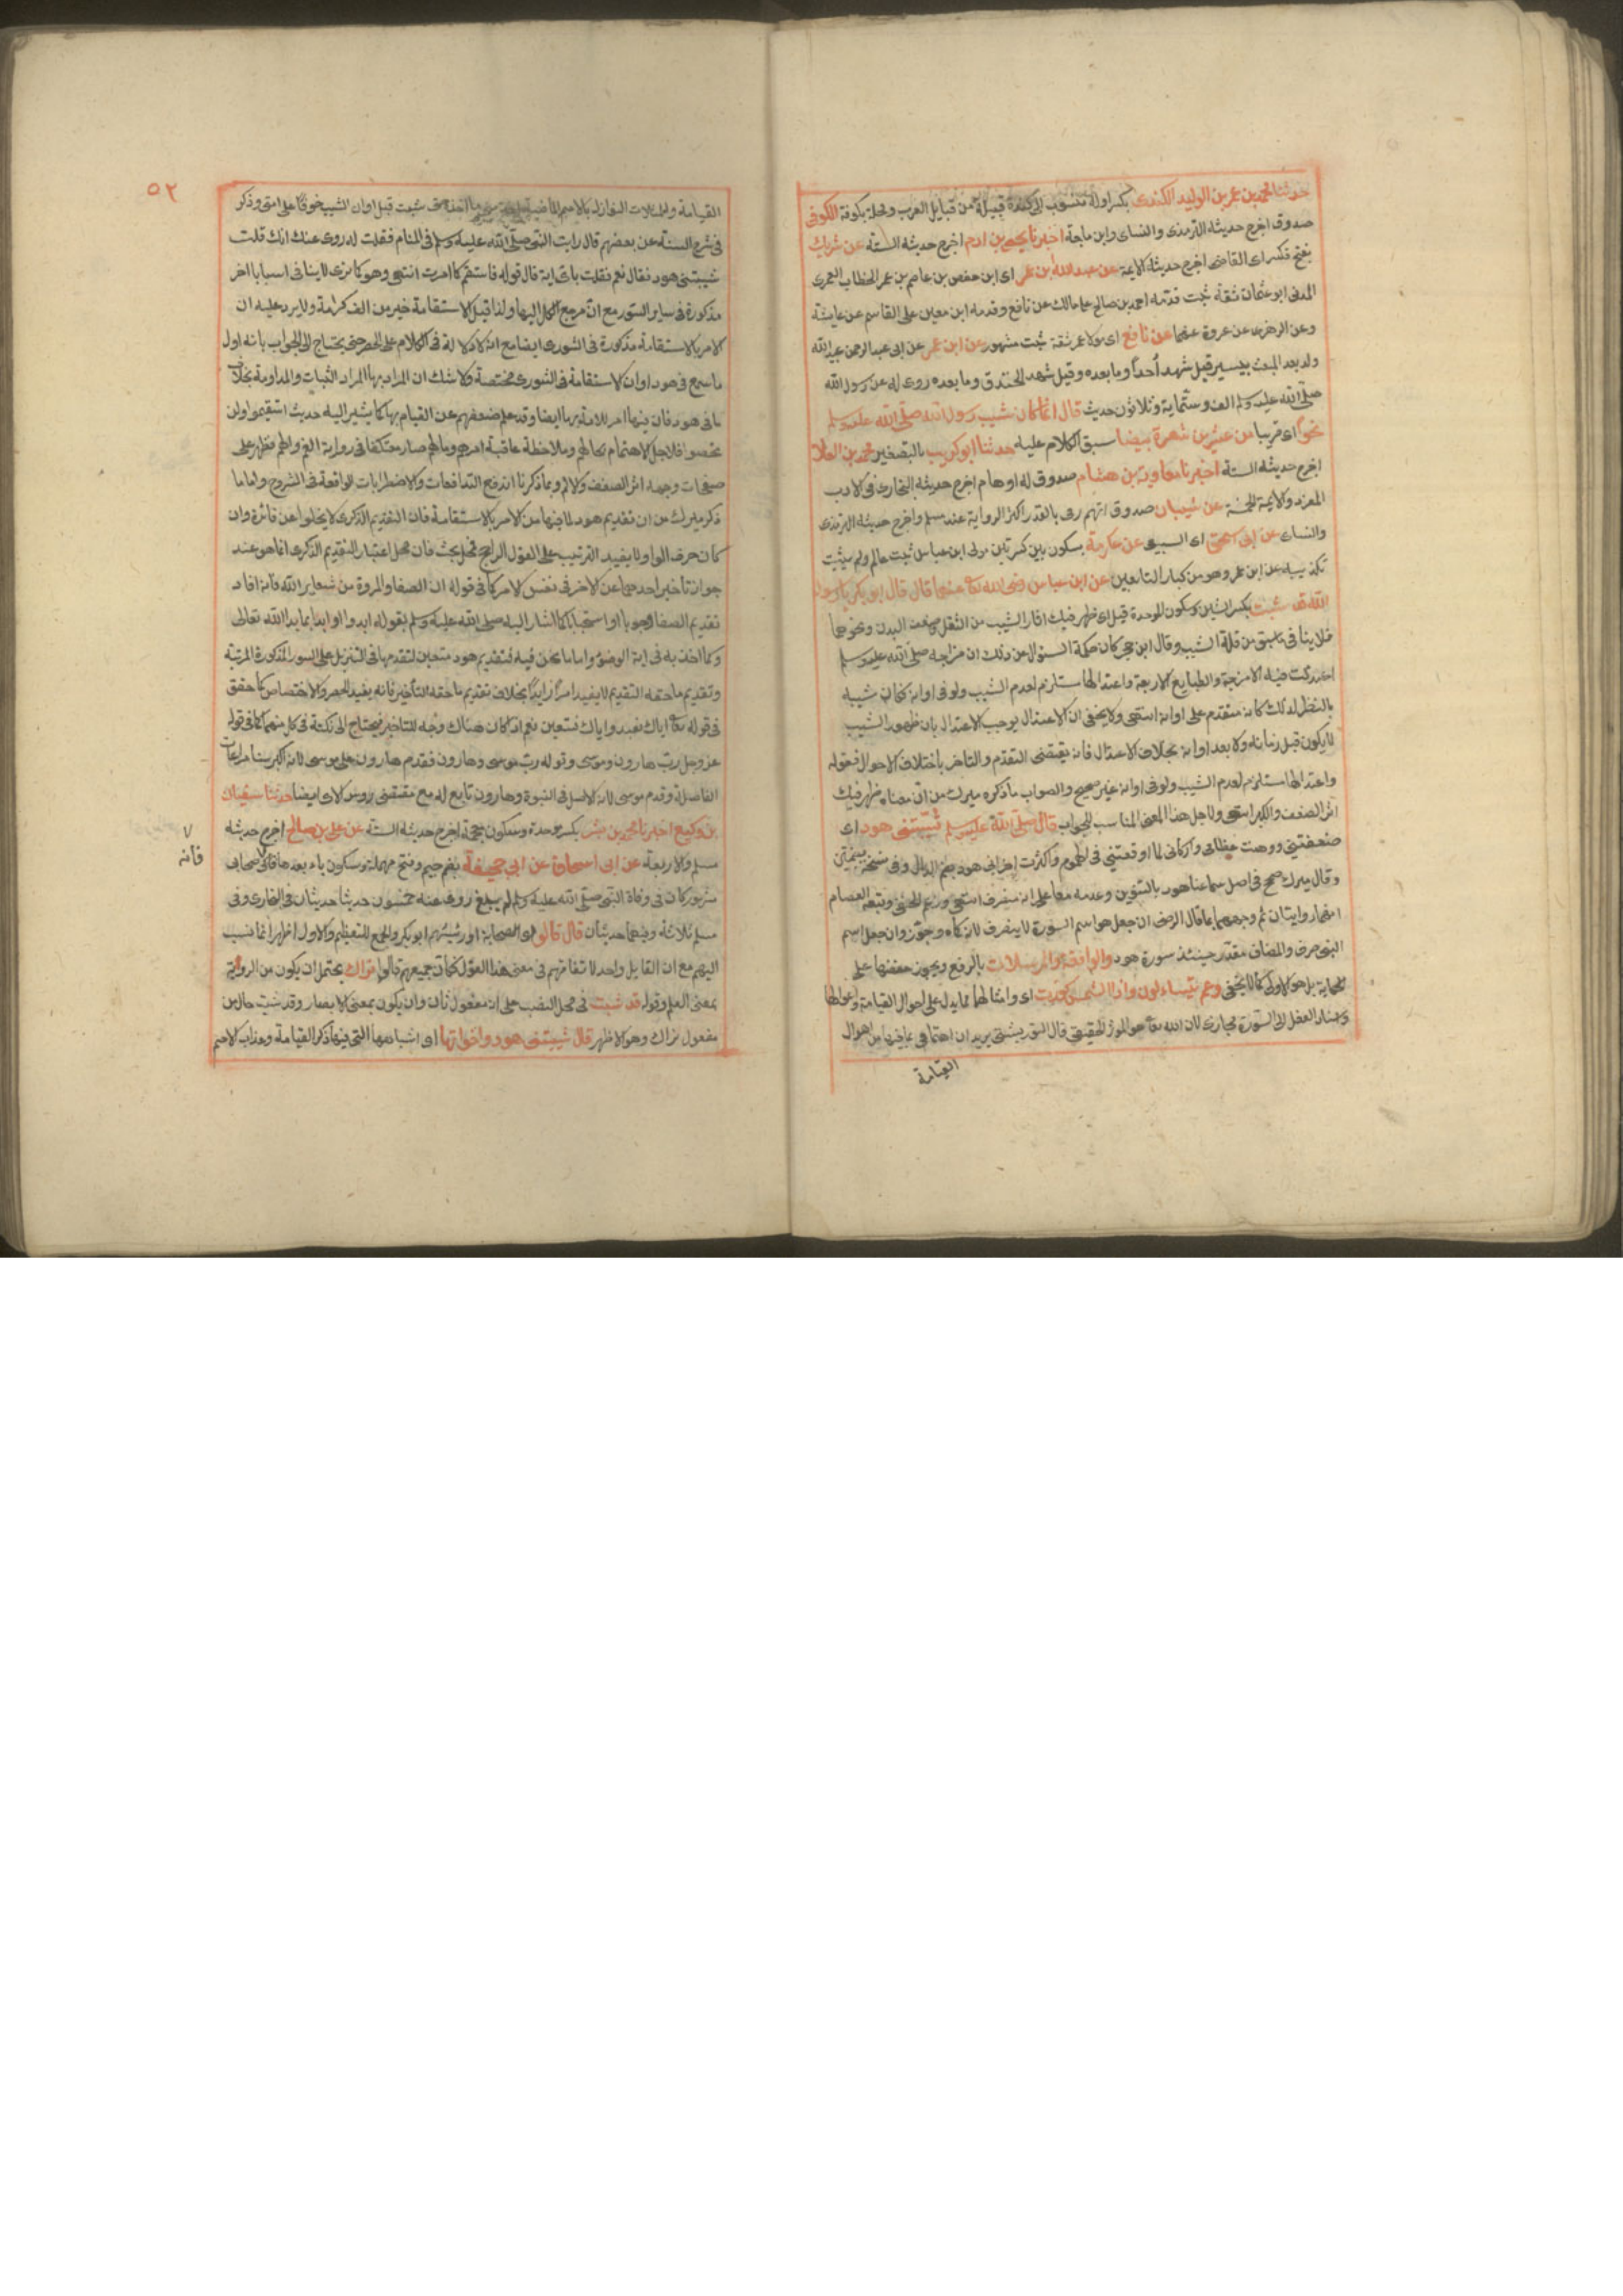 حدثنا محمد بن عمر بن الوليد الكندى بكسر اوله منسوب الى كندة قبيلة من قبايل العرب ومحلة بكوفة الكوفى
صدوق اخرج حديثه الترمذى والنساى وابن ماجة اخبرنا يحيى بن ادم اخرج حديثه الستة عن شريك
بفتح فكسر اى القاضى اخرج حديثه الايمة عن عبد الله بن عمر اى ابن حفص بن عاصم بن عمر الخطاب العمرى
المدنى ابو عثمان ثقة ثبت قدمه احمد بن صالح على مالك عن نافع وقدمه ابن معين على القاسم عن عايشة
وعن الزهرى عن عروة عنها عن نافع اى مولا عمر ثقة ثبت مشهور عن ابن عمر عن ابى عبد الرحمن عبد الله
ولد بعد المبعث بيسير قيل شهد أحداً وما بعده وقيل شهد الخندق وما بعده روى له عن رسول الله
صلى الله عليه وسلم الف وستماية وثلاثون حديث قال انما كان شيب رسول الله صلى الله عليه وسلم
نحواً اى قريبا من عشرين شعرة بيضا سبق الكلام عليه حدثنا ابو كريب بالتصغير محمد بن العلا
اخرج حديثه الستة اخبرنا معاوية بن هشام صدوق له اوهام اخرج حديثه البخارى فى الادب
المفرد والايمة الخمسة عن شيبان صدوق اتهم رمى بالقدر اكثر الرواية عنه مسلم واخرج حديثه الترمذى
والنساى عن ابى اسحق اى السبيعى عن عكرمة بسكون بين كسرتين مولى ابن عباس ثبت عالم ولم يثبت
تكذيبه عن ابن عمر وهو من كبار التابعين عن ابن عباس رضى الله تعا عنهما قال قال ابو بكر يا رسول
الله قد شبت بكسر الشين وسكون الموحدة قيل اى ظهر فيك اثار الشيب من الثقل وضعف البدن ونحوهما
فلا ينافى ما سبق من قلة الشيب وقال ابن حجر كان حكمة السؤال عن ذلك ان مزاجه صلى الله عليه وسلم
اعتدلت فيه الامزجة والطبايع الاربعة واعتدالها مستلزم لعدم الشيب ولو فى اوانه فكان شيبه
بالنظر لذلك كانه متقدم على اوانه انتهى ولا يخفى ان الاعتدال يوجب الاعتدال بان ظهور الشيب
لا يكون قبل زمانه ولا بعد اوانه بخلاف الاعتدال فانه يقتضى التقدم والتاخر باختلاف الاحوال فقوله
واعتدالها مستلزم لعدم الشيب ولو فى اوانه غير صحيح والصواب ما ذكره ميرك من ان معناه ظهر فيك
اثر الضعف والكبر انتهى ولاجل هذا المعنى المناسب للجواب قال صلى الله عليه وسلم شيبتنى هود اى
ضعفتنى ووهنت عظامى واركانى لما اوقعتنى فى الهموم واكثرت احزانى هود بضم الدال وفى نسخة بضمتين
وقال ميرك صحح فى اصل سماعنا هود بالتنوين وعدمه معا على انه منصرف انتهى وزعم الحنفى وتبعه العصام
انهما روايتان ثم وجههما بما قال الرضى ان جعل هو اسم السورة لا ينصرف لانه كماه وجوز وان جعل اسم
النبى صرف والمضاف مقدر حينئذ سورة هود والواقعة والمرسلات بالرفع ويجوز خفضها على
الحكاية بل هو الاولى كما لا يخفى وعم يتساءلون واذا الشمس كورت اى وامثالها مما يدل على احوال القيامة واهوالها
واسناد الفعل الى السورة مجازى لان الله تعا هو الموثر الحقيقى قال التوربشتى يريد ان اهتمامى بما فيها من اهوال
القيامة
٥٢
القيامة والمثلات النوازل بالامم الماضية اخذ منى ما اخذه حتى شبت قبل اوان الشيب خوفا على امتى وذكر
فى شرح السنة عن بعضهم قال رايت النبى صلى الله عليه وسلم فى المنام فقلت له روى عنك انك قلت
شيبتنى هود فقال نعم فقلت باى اية قال قوله فاستقم كما امرت انتهى وهو كما ترى لا ينافى اسبابا اخر
مذكورة فى ساير السور مع ان مرجع الكل اليها ولذا قيل الاستقامة خير من الف كرامة ولا يرد عليه ان
الامر بالاستقامة مذكورة فى الشورى ايضا مع انه لا دلالة فى الكلام على الحصر حتى يحتاج الى الجواب بانه اول
ما سمع فى هود او ان الاستقامة فى الشورى مختصة ولا شك ان المراد بها المراد الثبات والمداومة بخلاف
ما فى هود فان فيها امر للامة بها ايضا وقد علم ضعفهم عن القيام بها كما يشير اليه حديث استقيموا ولن
تحصوا فلاجل الاهتمام بحالهم وملاحظة عاقبة امرهم ومالهم صار معتكفا فى زواية الغم والهم فظهر على
صفحات وجهه اثر الضعف والالم وبما ذكرنا اندفع التدافعات والاضطرابات الواقعة فى الشروح واما ما
ذكر ميرك من ان تقديم هود لما فيها من الامر بالاستقامة فان التقديم الذكرى لا يخلو عن فائدة وان
كان حرف الواو لا يفيد الترتيب على القول الراجح فمحل بحث فان محل اعتبار التقديم الذكرى انما هو عند
جواز تاخير احدهما عن الاخر فى نفس الامر كما فى قوله ان الصفا والمروة من شعاير الله فانه افاد
تقديم الصفا وجوبا او استحبابا كما اشار اليه صلى الله عليه وسلم بقوله ابدوا او ابدا بما بدا الله تعالى
وكما اخذ به فى اية الوضوء واما ما نحن فيه فتقديم هود متعين لتقدمها فى التنزيل على السور المذكورة المرتبة
وتقديم ما حقه التقديم لا يفيد امرا زايدا بخلاف تقديم ما حقه التاخير فانه يفيد الحصر والاختصاص كما حقق
فى قوله تعا اياك نعبد واياك نستعين نعم اذا كان هناك وجه للتاخير فيحتاج الى نكتة فى كل منهما كما فى قوله
عز وجل رب هارون وموسى وقوله رب موسى وهارون فقدم هارون على موسى لانه اكبر سنا مراعات
الفاصلة وقدم موسى لانه الاصل فى النبوة وهارون تابع له مع مقتضى روس الاى ايضا حدثنا سفيان
بن وكيع اخبرنا محمد بن بشر بكسر موحدة وسكون معجمة اخرج حديثه الستة عن على بن صالح اخرج حديثه
مسلم والاربعة عن ابى اسحاق عن ابى جحيفة بضم جيم وفتح مهملة وسكون ياء بعدها فا اى صحابى
مشهور كان فى وفاة النبى صلى الله عليه وسلم لم يبلغ روى عنه خمسون حديثا حديثان فى البخارى وفى
مسلم ثلاثة وفيهما حديثان قال قالوا اى الصحابة او رئيسهم ابو بكر والجمع للتعظيم والاول اظهر انما نسب
اليهم مع ان القايل واحد لاتفاقهم فى معنى هذا القول فكان جميعهم قالوا نراك يحتمل ان يكون من الرؤية
بمعنى العلم وقوله قد شبت فى محل النصب على انه مفعول ثان وان يكون بمعنى الابصار وقد شبت حال من
مفعول نراك وهو الاظهر قال شيبتنى هود واخواتها اى اشباهها التى فيها ذكر القيامة وعذاب الامم
٧
فانه